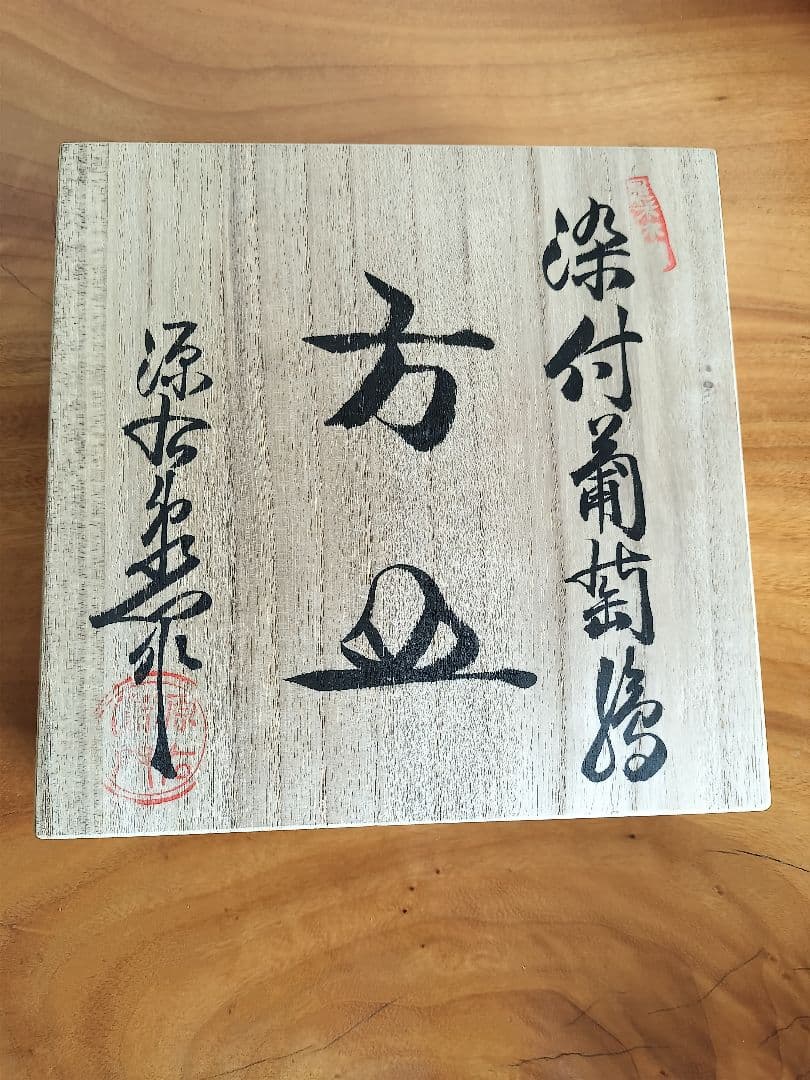 染付葡萄繪
方皿
源右衛門